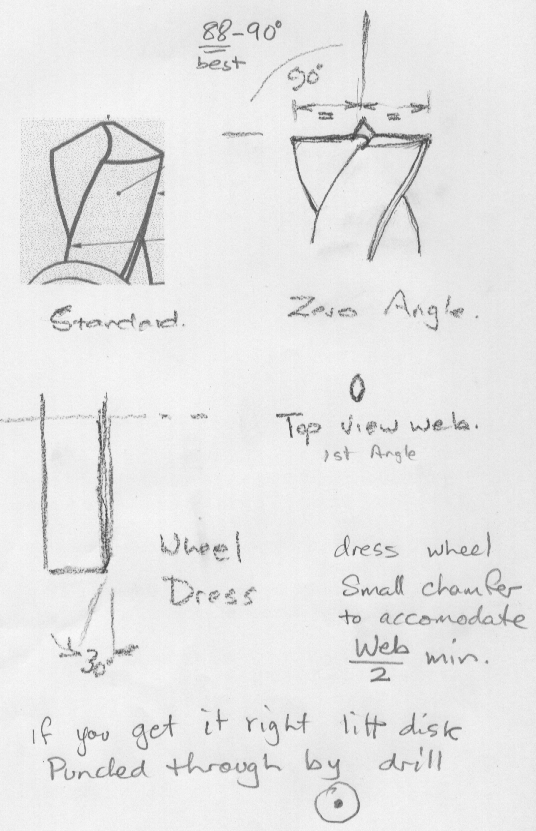 88-90°
best
90°
= =
Standard.
Zero Angle.
Top view web.
1st Angle
Wheel
Dress
30°
dress wheel
Small chamfer
to accomodate
Web
2
min.
If you get it right litt disk
Punched through by drill